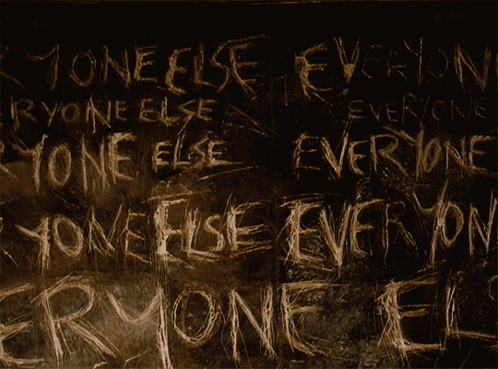 RYONE ELSE EVERYON
ERYONE ELSE EVERYONE
RYONE ELSE EVERYONE
RYONE ELSE EVERYON
ERYONE ELS